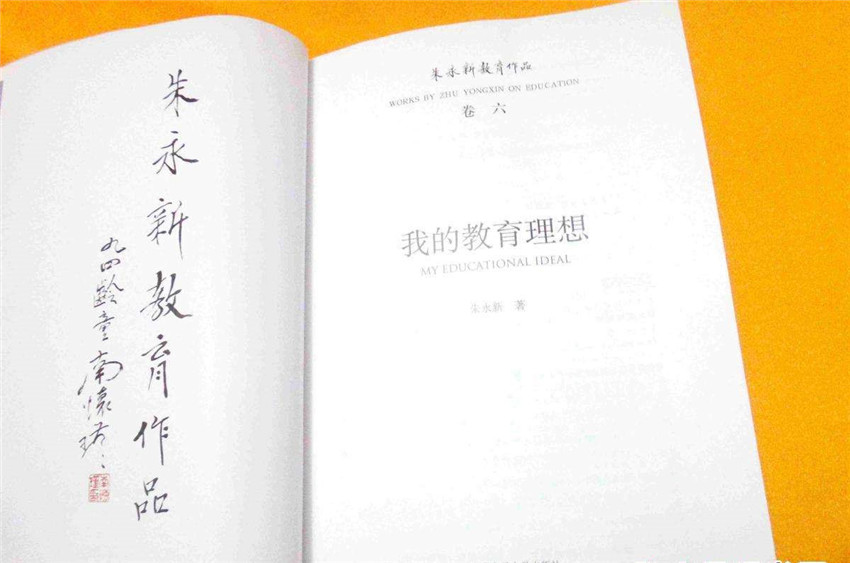 朱永新教育作品
九四龄童南怀瑾
朱永新教育作品
WORKS BY ZHU YONGXIN ON EDUCATION
卷 六
我的教育理想
MY EDUCATIONAL IDEAL
朱永新 著